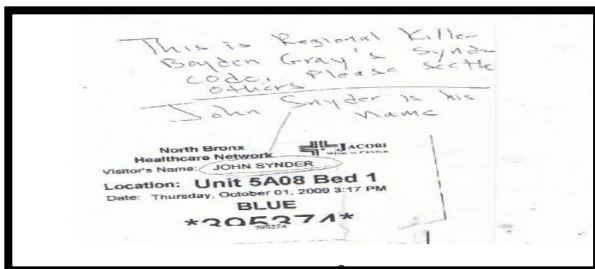 This is Regional Killer
Boyden Gray's Synde
code. Please see the
others
John Snyder is his
name
North Bronx
Healthcare Network
JACOBI
MEDICAL CENTER
Visitor's Name: JOHN SYNDER
Location: Unit 5A08 Bed 1
Date: Thursday, October 01, 2009 3:17 PM
BLUE
*395374*
395374